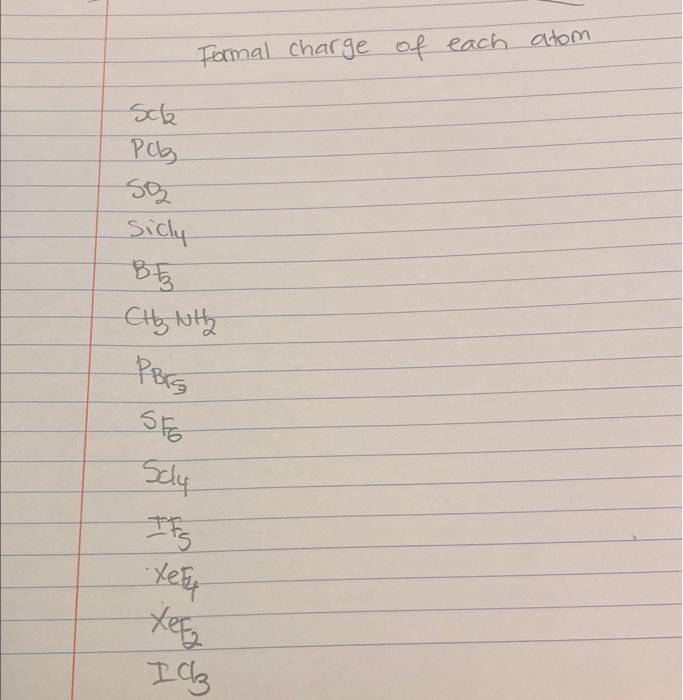 Formal charge of each atom
SCl2
PCl3
SO2
SiCl4
BF3
CH3 NH2
PBr5
SF6
SCl4
IF5
XeF4
XeF2
ICl3